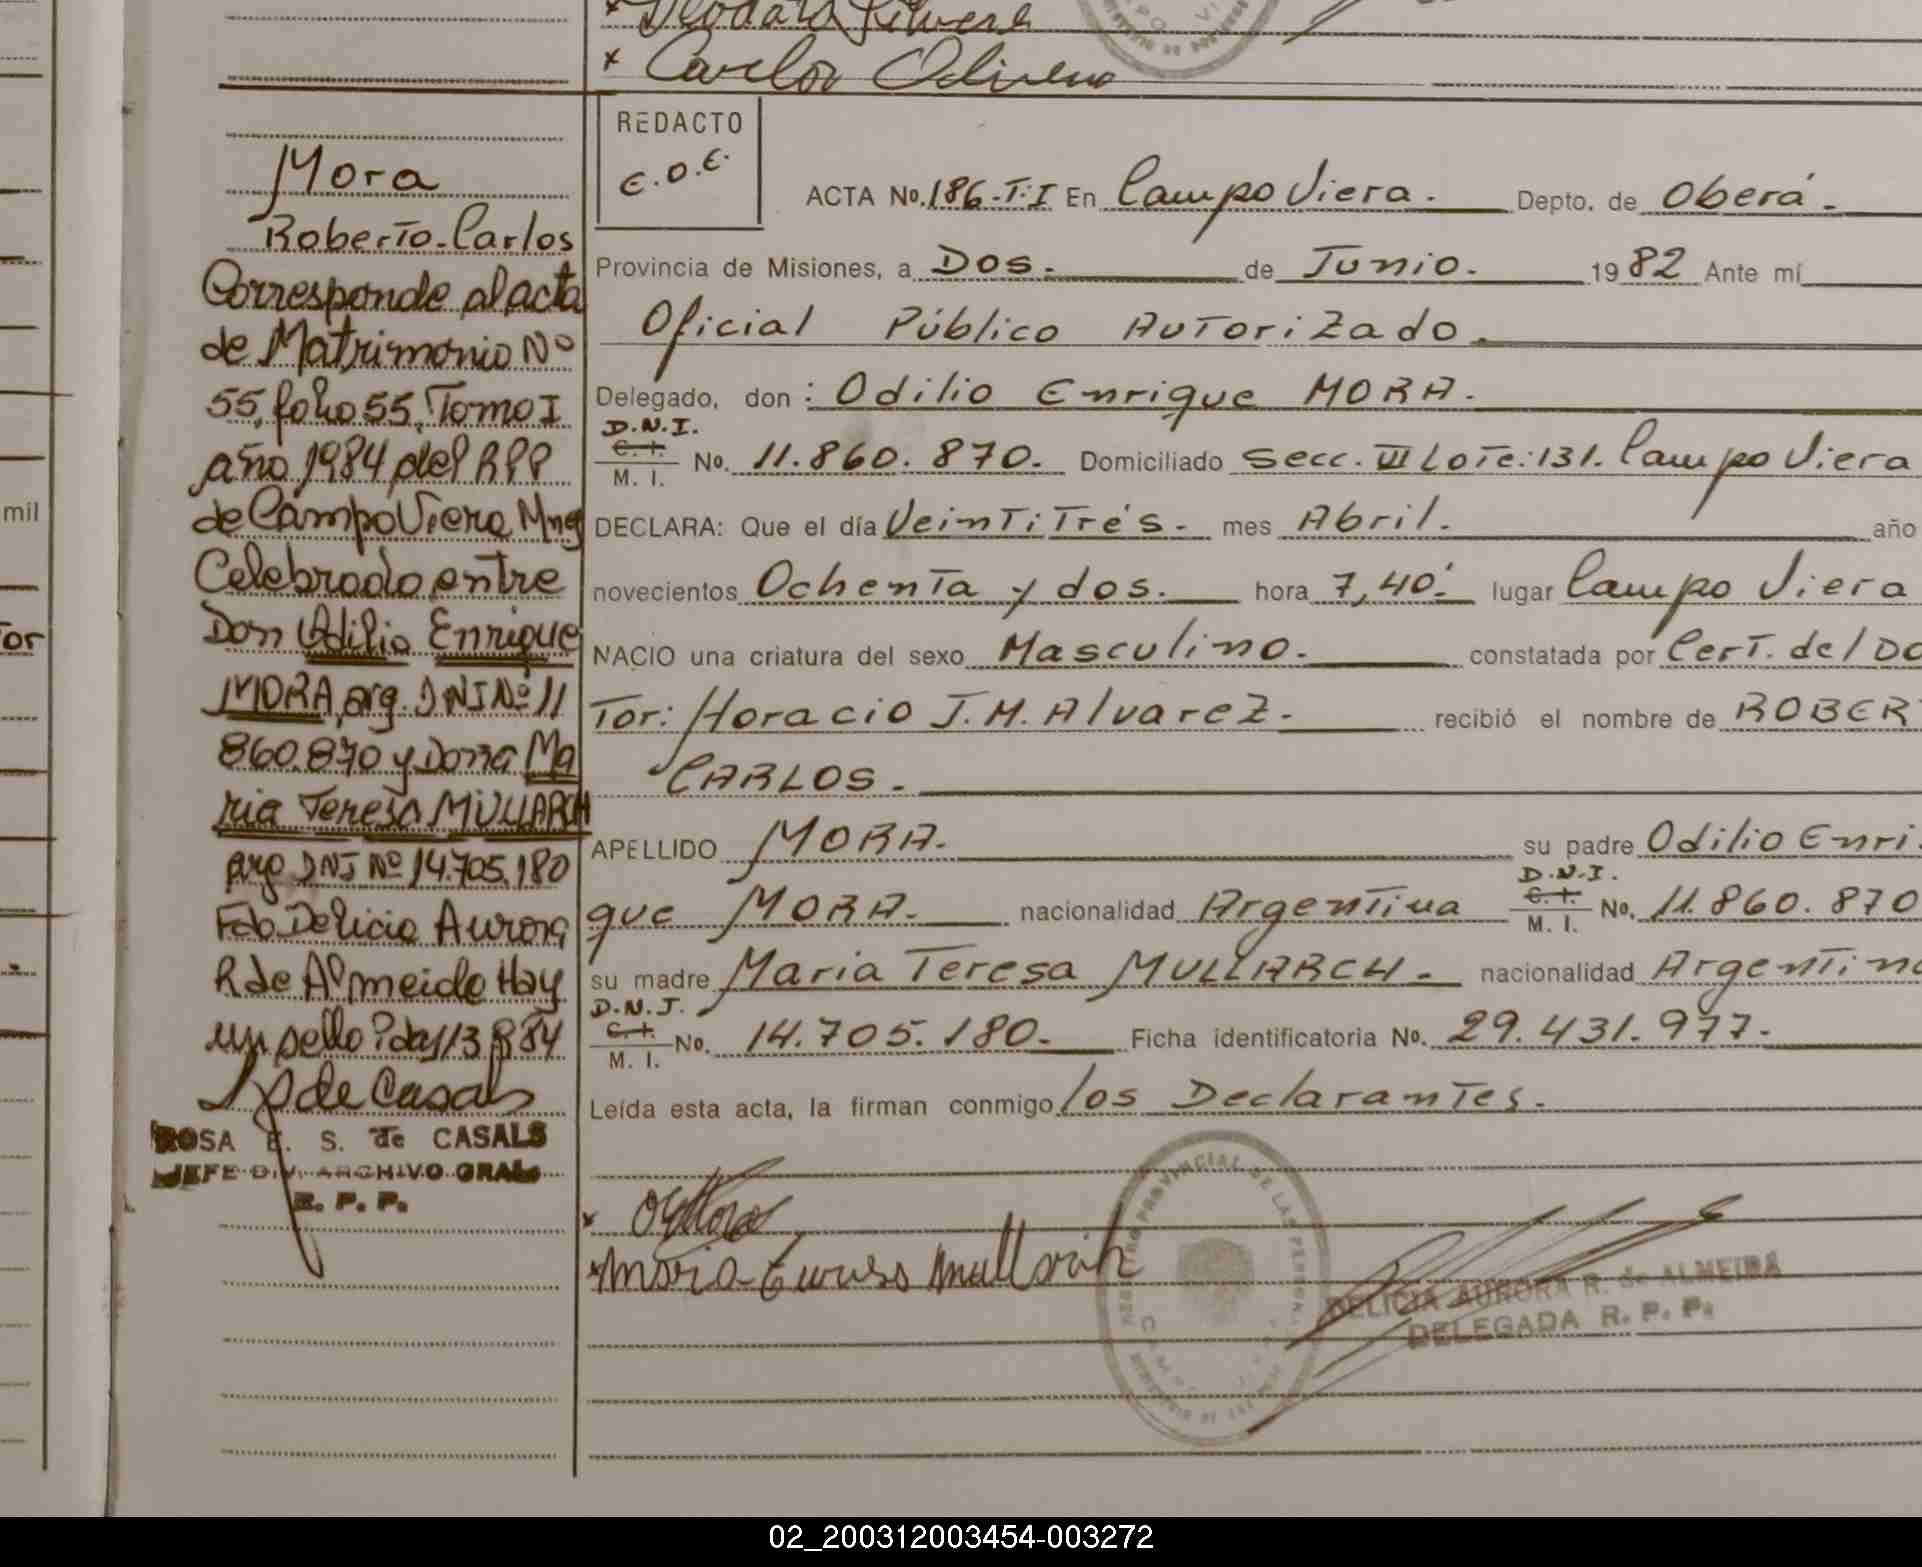 Carlos Olivera
REDACTO
E.O.E.
Mora
Roberto Carlos
Corresponde al acta
de Matrimonio Nº
55, folio 55, Tomo I
año 1984 del RPP
de Campo Viera Mnes
Celebrado entre
Don Odilio Enrique
MORA, arg. DNI Nº 11
860.870 y Doña Ma
ria Teresa MULLARCH
arg DNI Nº 14.705.180
Fdo Delicia Aurora
R de Almeida Hay
un sello
ROSA E. S. de CASALS
JEFE DIV. ARCHIVO GRAL.
R. P. P.
ACTA No. 186-T:I En Campo Viera. Depto. de Oberá.
Provincia de Misiones, a Dos. de Junio. 1982 Ante mí
Oficial Público Autorizado.
Delegado, don: Odilio Enrique MORA.
D.N.I.
C. I.
M. I.
No. 11.860.870. Domiciliado Secc. III Lote: 131. Campo Viera
DECLARA: Que el día Veintitrés. mes Abril. año
novecientos Ochenta y dos. hora 7,40'. lugar Campo Viera
NACIO una criatura del sexo Masculino. constatada por Cert. del Doc
Tor: Horacio J. M. Alvarez. recibió el nombre de ROBERT
CARLOS.
APELLIDO MORA. su padre Odilio Enri
D.N.I.
C. I.
M. I.
que MORA. nacionalidad Argentina No. 11.860.870
su madre Maria Teresa MULLARCH. nacionalidad Argentina
D.N.I.
C. I.
M. I.
No. 14.705.180. Ficha identificatoria No. 29.431.977.
Leída esta acta, la firman conmigo los Declarantes.
Maria Teresa Mullarch
DELICIA AURORA R. de ALMEIDA
DELEGADA R. P. P.
mil
Tor
02_200312003454-003272